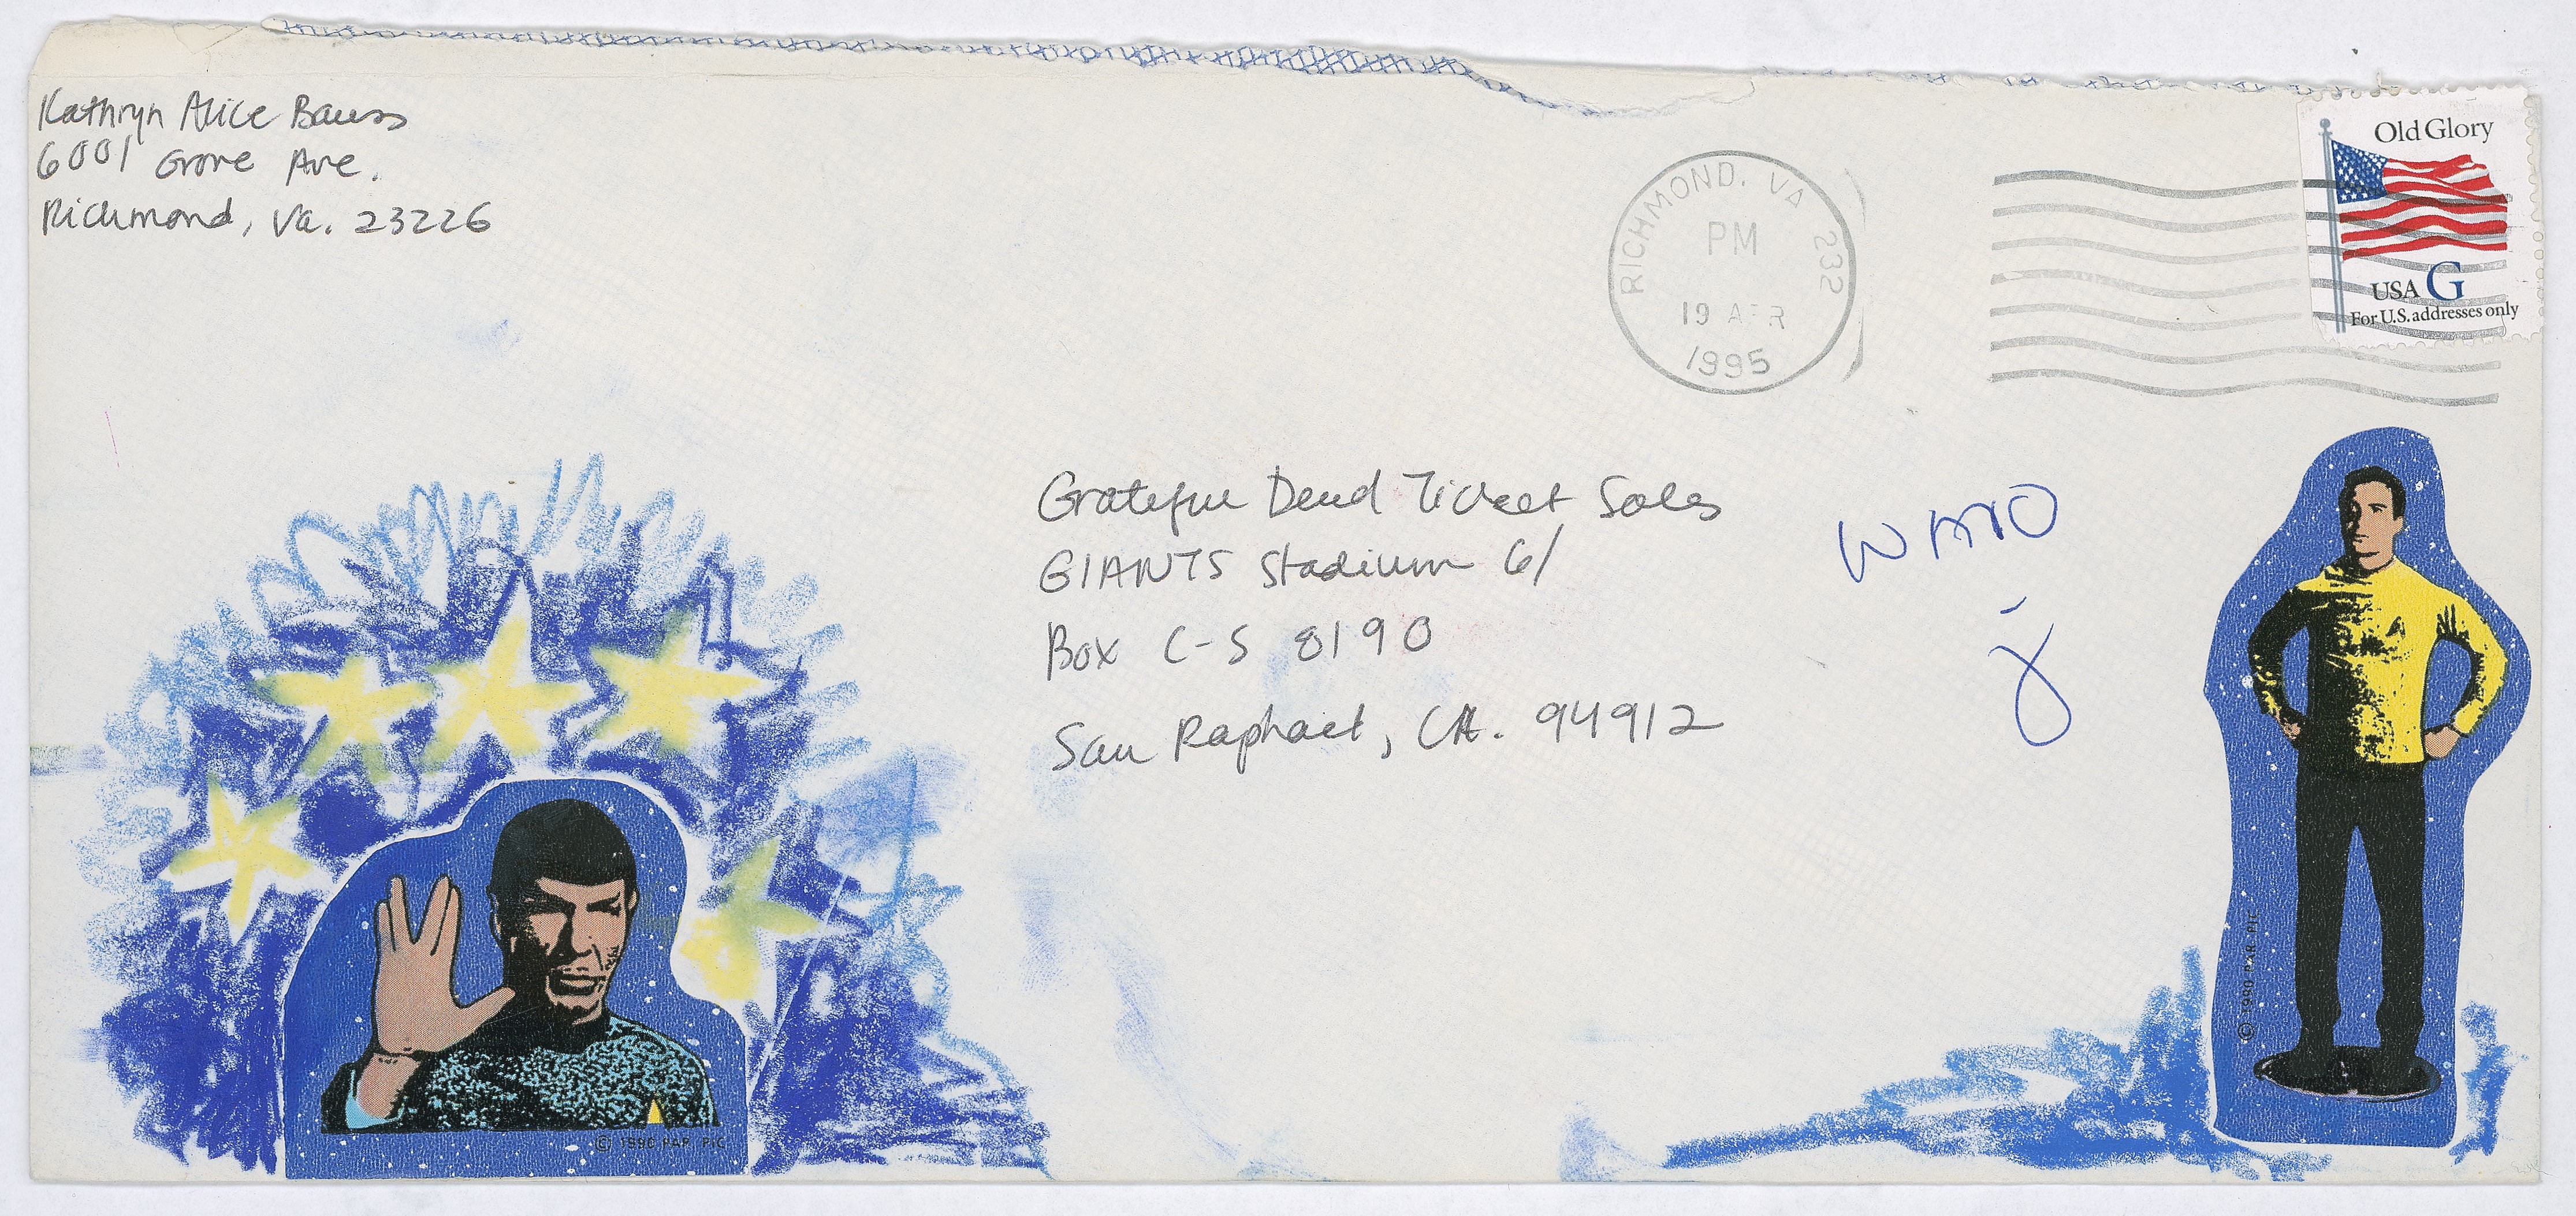 Kathryn Alice Bauss
6001 Grove Ave.
Richmond, Va. 23226
RICHMOND, VA 232
PM
19 APR
1995
Old Glory
USA G
For U.S. addresses only
Grateful Dead Ticket Sales
GIANTS Stadium 6/
Box C-S 8190
San Raphael, CA. 94912
© 1990 PAR. PIC.
© 1990 PAR. PIC.